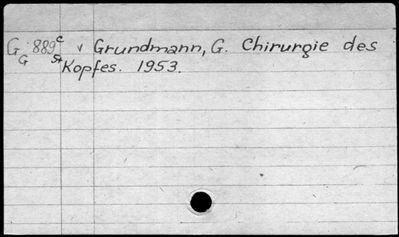 G 889 c v Grundmann, G. Chirurgie des
G St Kopfes. 1953.